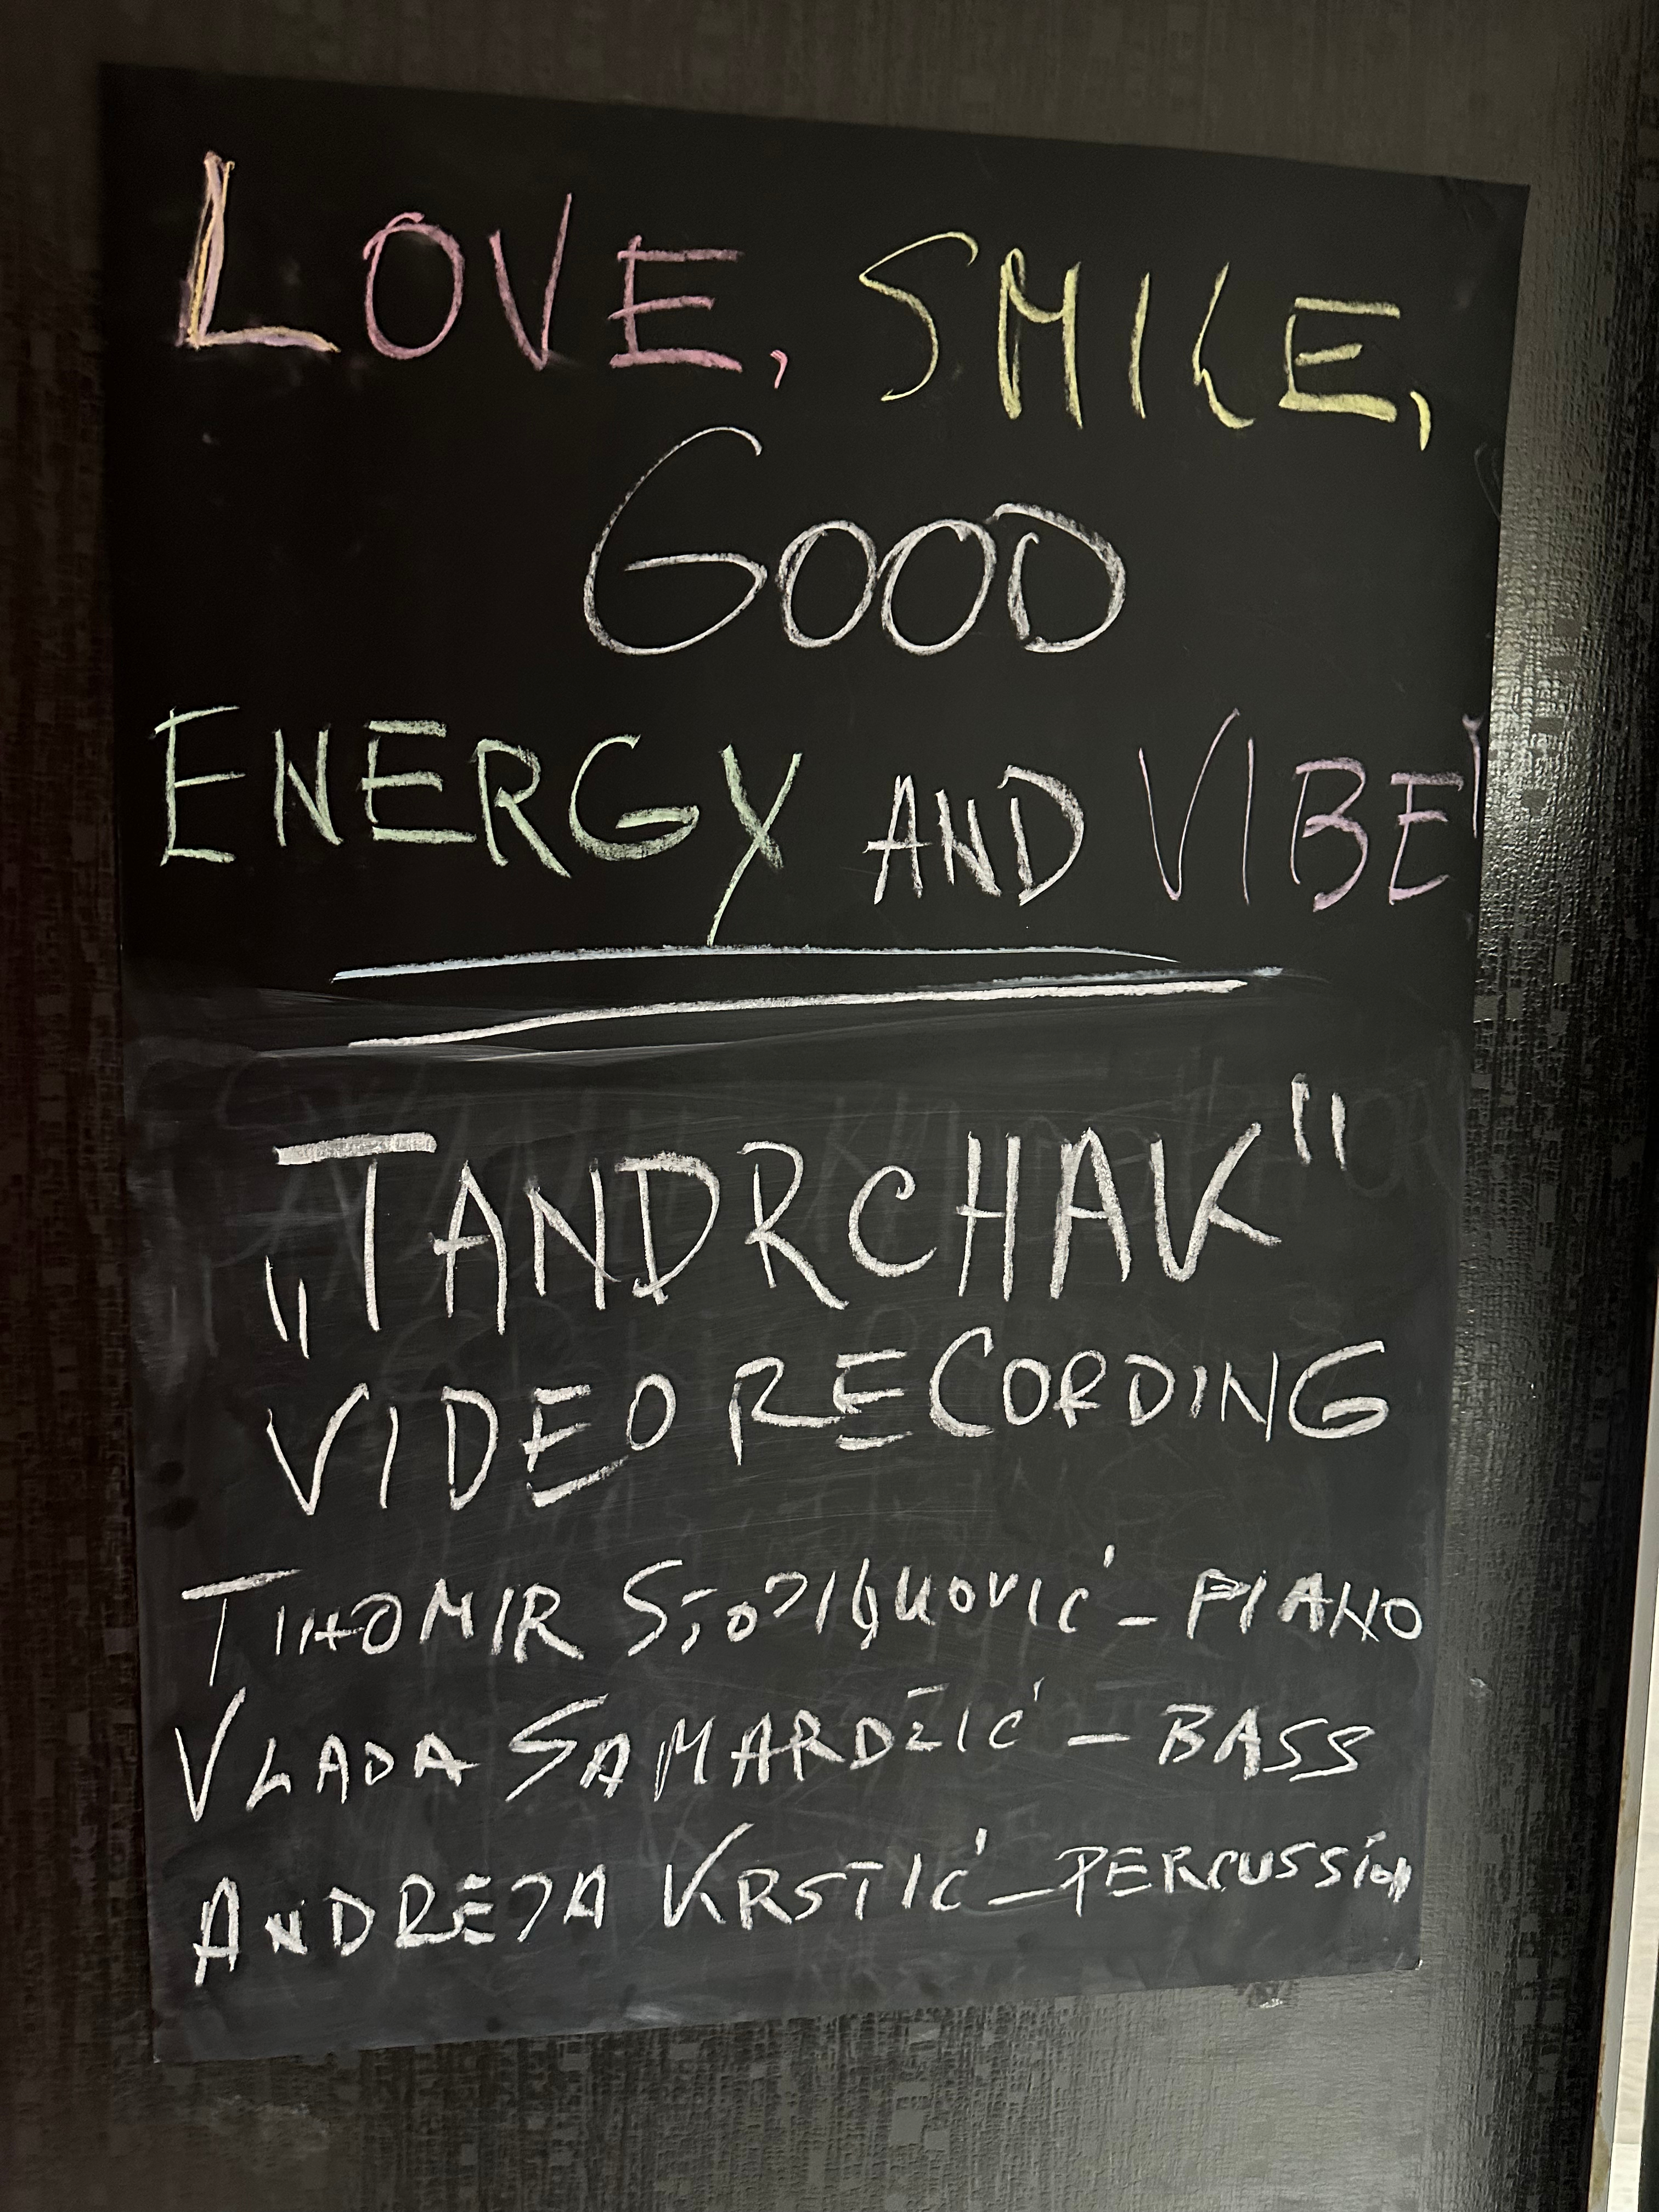 LOVE, SMILE,
GOOD
ENERGY AND VIBE!
„TANDRCHAK"
VIDEO RECORDING
TIHOMIR - PIANO
VLADA SAMARDZIĆ - BASS
ANDREJA KRSTIĆ - PERCUSSION